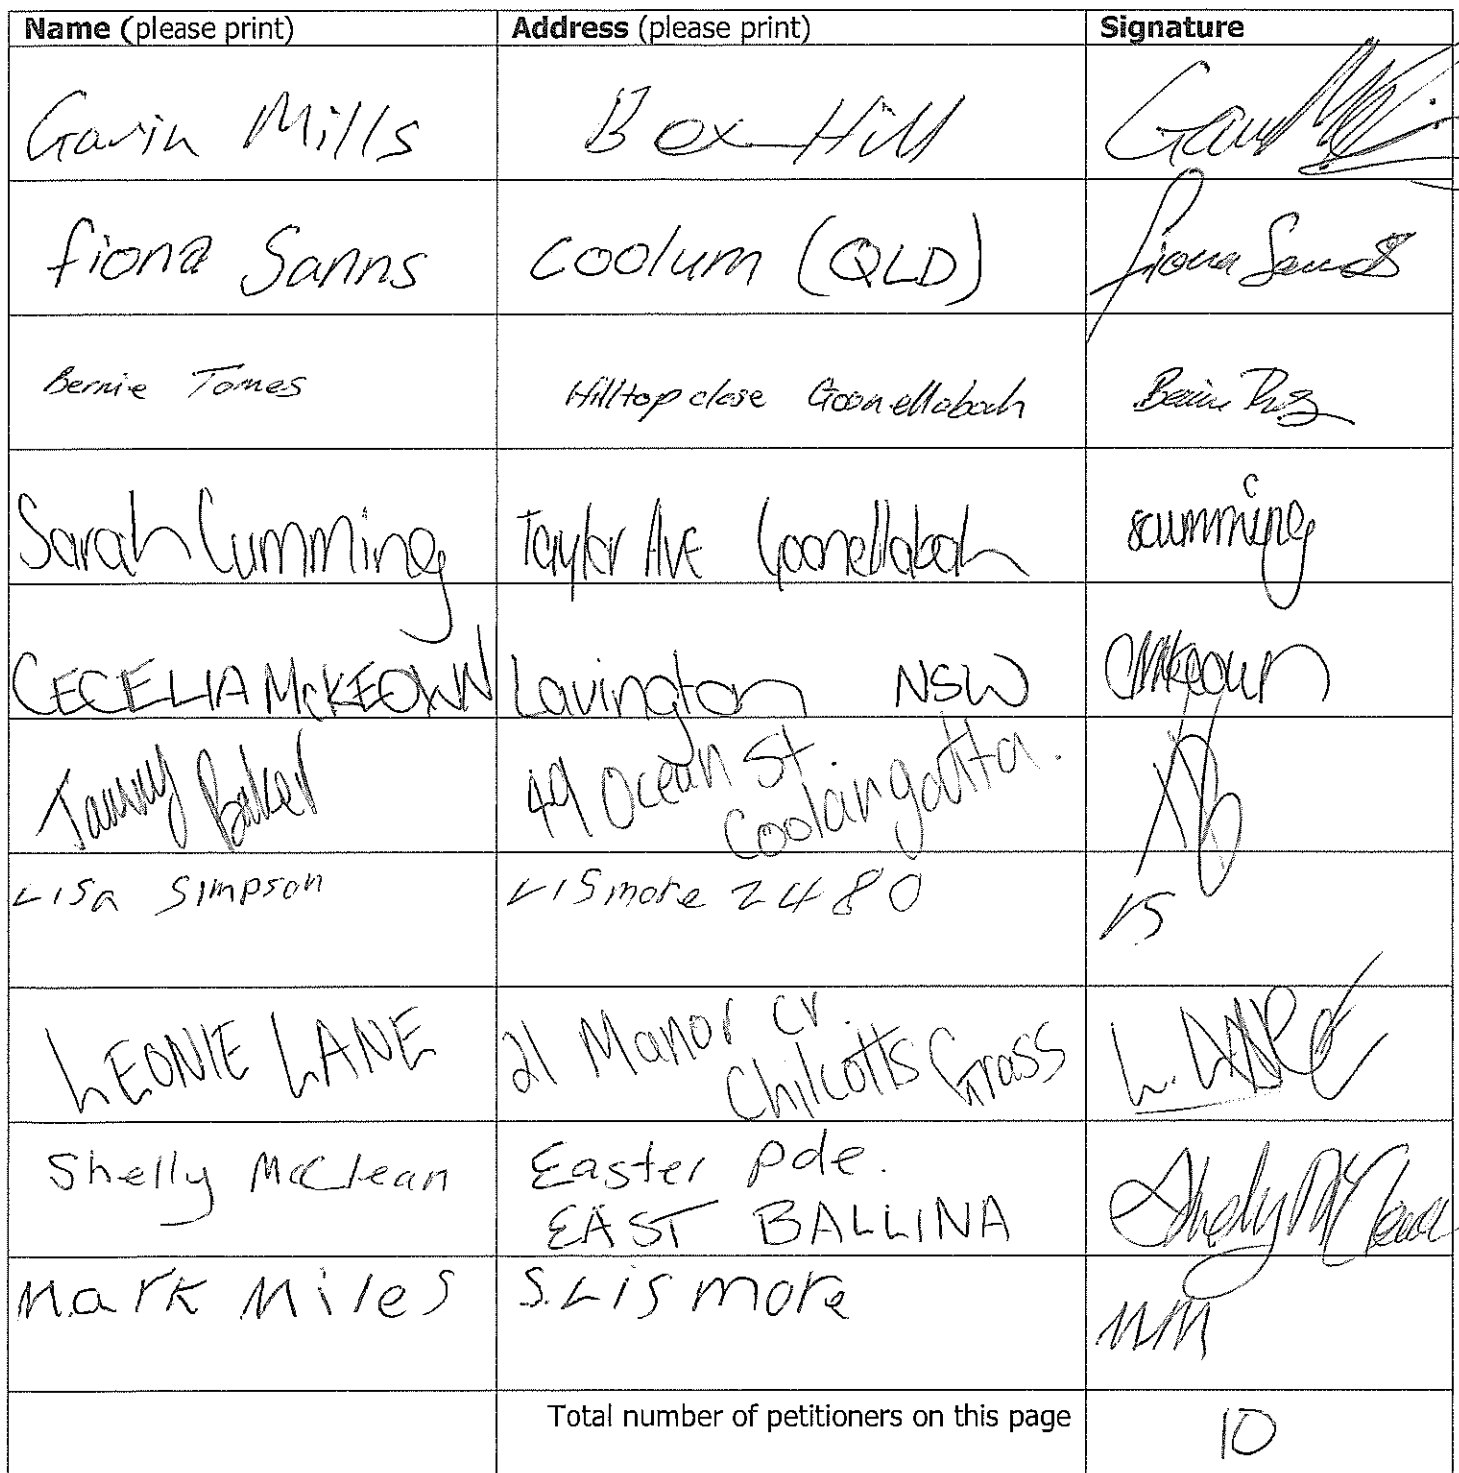 Name (please print) Address (please print) Signature
Gavin Mills Box Hill
fiona Sanns Coolum (QLD) fiona Sanns
Bernie Tomes Hilltop close Goonellabah Bernie
Sarah Cumming Taylor Ave Goonellabah scumming
CECELIA McKEOWN Lavington NSW CMcKeown
Tammy Baker 49 Ocean St.
Coolangatta. TB
Lisa Simpson Lismore 2480 LS
LEONIE LANE 21 Manor Cr.
Chilcotts Grass L. LANE
Shelly McClean Easter pde.
EAST BALLINA Shelly McClean
Mark Miles S. Lismore MM
Total number of petitioners on this page 10